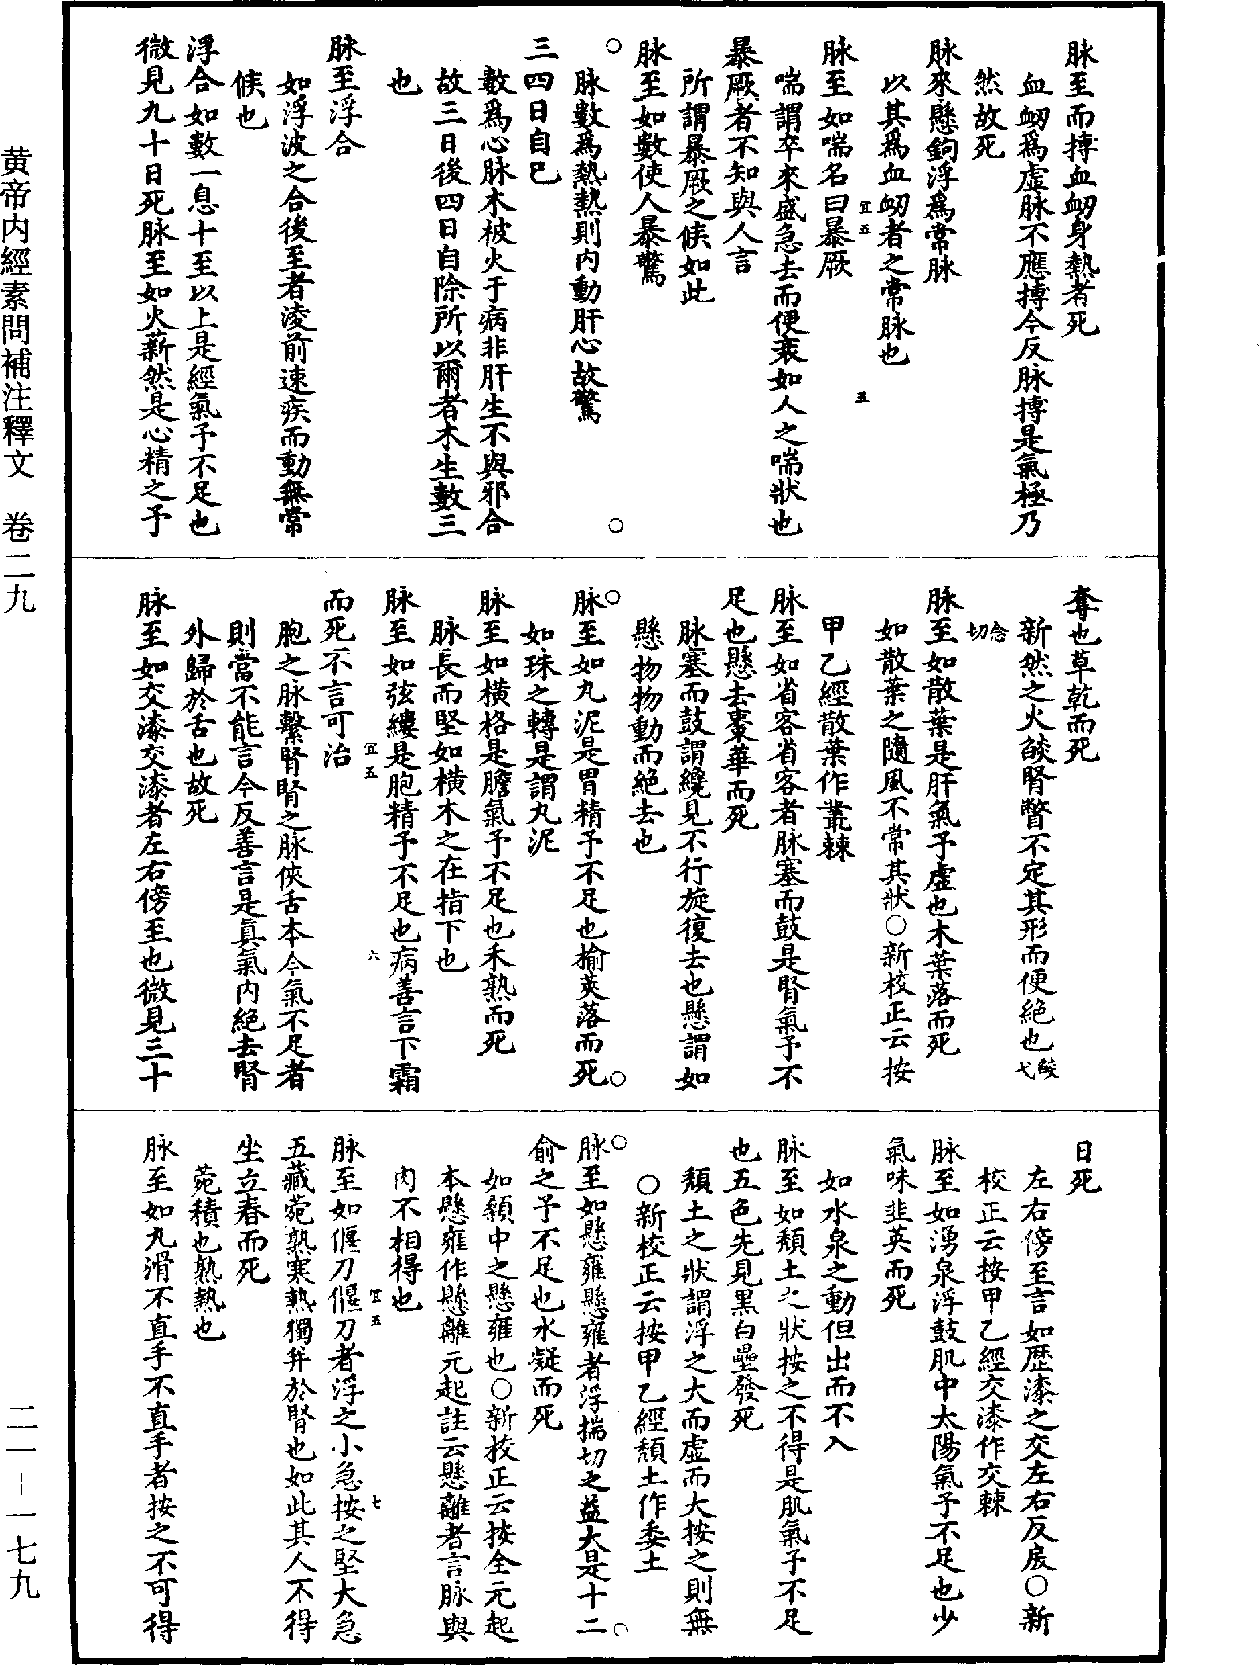 脉至而搏血衂身熱者死
血衂爲虛脉不應搏今反脉搏是氣極乃
然故死
脉來懸鉤浮爲常脉
以其爲血衂者之常脉也
脉至如喘名曰暴厥
喘謂卒來盛急去而便衰如人之喘狀也
暴厥者不知與人言
所謂暴厥之候如此
脉至如數使人暴驚
脉數爲熱熱則内動肝心故驚
三四日自已
數爲心脉木被火干病非肝生不與邪合
故三日後四日自除所以爾者木生數三
也
脉至浮合
如浮波之合後至者淩前速疾而動無常
候也
浮合如數一息十至以上是經氣予不足也
微見九十日死脉至如火薪然是心精之予
奪也草乾而死
新然之火燄腎瞥不定其形而便絶也
脉至如散葉是肝氣予虛也木葉落而死
如散葉之隨風不常其狀○新校正云按
甲乙經散葉作叢棘
脉至如省客省客者脉塞而鼓是腎氣予不
足也懸去棗華而死
脉塞而鼓謂纔見不行旋復去也懸謂如
懸物物動而絶去也
脉至如丸泥是胃精予不足也榆莢落而死
如珠之轉是謂丸泥
脉至如橫格是膽氣予不足也禾熟而死
脉長而堅如橫木之在指下也
脉至如弦縷是胞精予不足也病善言下霜
而死不言可治
胞之脉繫腎腎之脉俠舌本今氣不足者
則當不能言今反善言是真氣内絶去腎
外歸於舌也故死
脉至如交漆交漆者左右傍至也微見三十
日死
左右傍至言如歷漆之交左右反戾○新
校正云按甲乙經交漆作交棘
脉至如湧泉浮鼓肌中太陽氣予不足也少
氣味韭英而死
如水泉之動但出而不入
脉至如頹土之狀按之不得是肌氣予不足
也五色先見黑白壘發死
頹土之狀謂浮之大而虛而大按之則無
○新校正云按甲乙經頹土作委土
脉至如懸雍懸雍者浮揣切之益大是十二
俞之予不足也水凝而死
如顙中之懸雍也○新校正云按全元起
本懸雍作懸離元起註云懸離者言脉與
肉不相得也
脉至如偃刀偃刀者浮之小急按之堅大急
五藏菀熟寒熱獨并於腎也如此其人不得
坐立春而死
菀積也熟熱也
脉至如丸滑不直手不直手者按之不可得
黄帝内經素問補注釋文　卷二九
二一－一七九